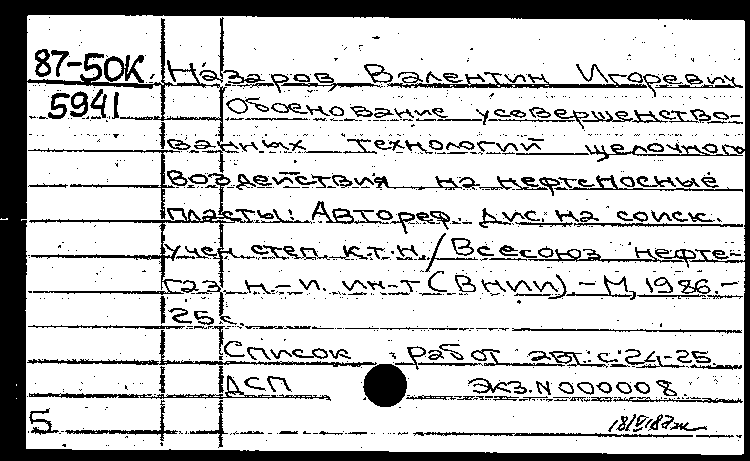 87-50К. Назаров, Валентин Игоревич
5941 Обоснование усовершенство-
ванных технологий щелочного
воздействия на нефтеносные
пласты: Автореф. дис. на соиск.
учен. степ. к.т.н. / Всесоюз. нефте-
газ. н.-и. ин-т (ВНИИ). - М., 1986. -
25 с.
Список работ авт.: с. 24-25
ДСП Экз. N 000008.
5